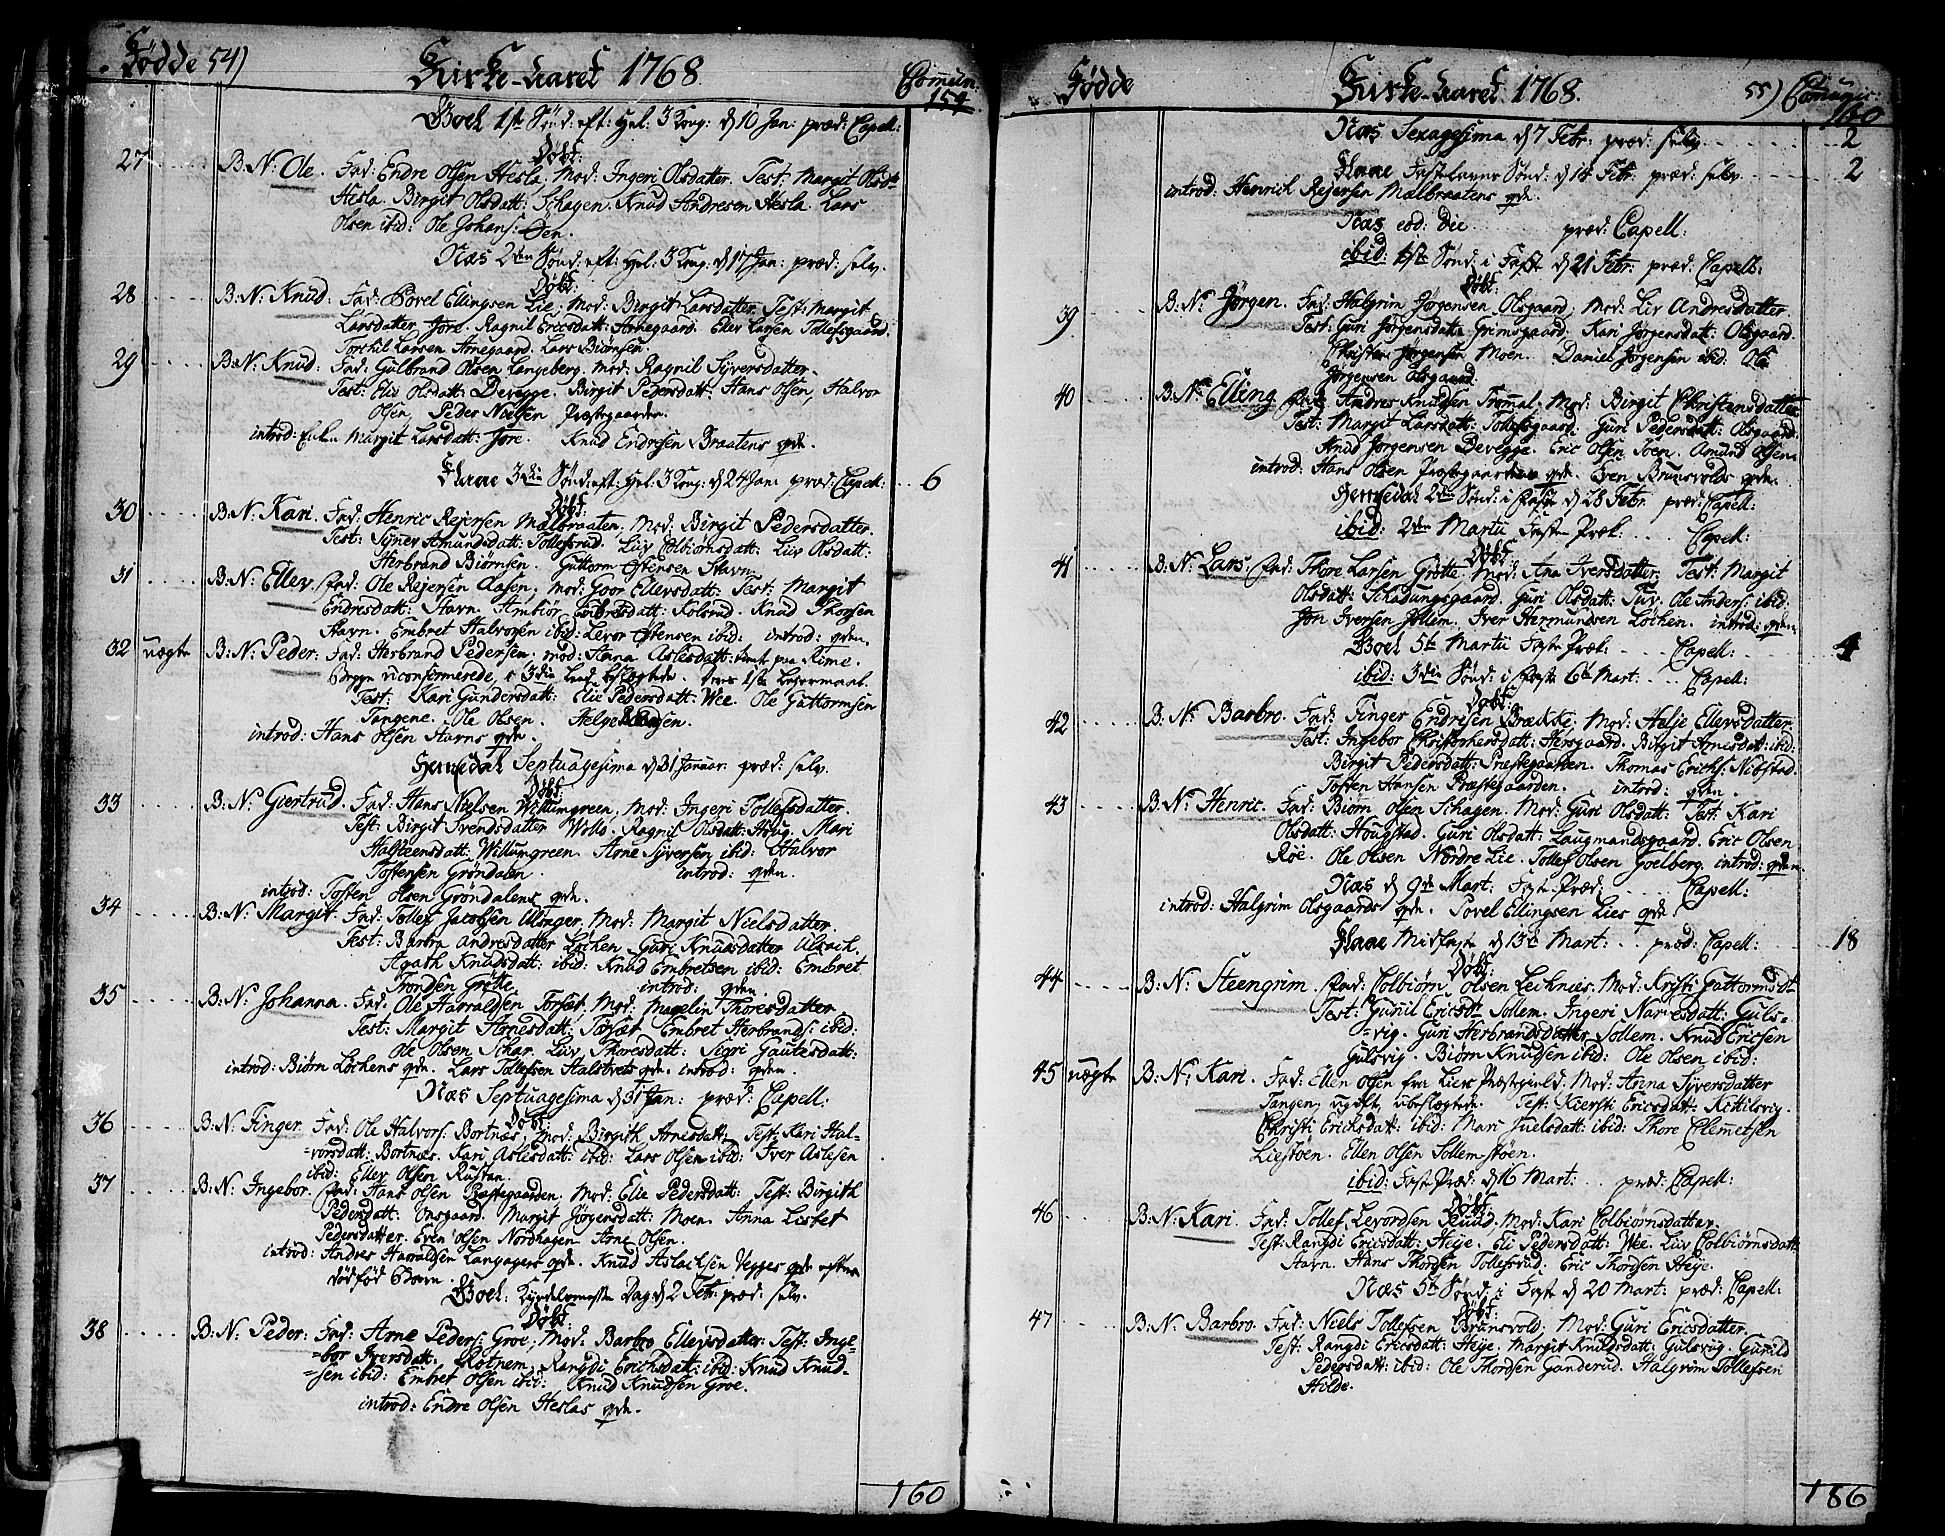 Fødde 54)
Kirke-Aaret 1768
Com̄un:
154
Goel 1ste Sønd: eft: Hel: 3 Kong: d 10 Jan: præd: Capell:
Døbt:
27 B:N: Ole. Fad: Endre Olsen Hesla, Mod: Ingeri Olsdatter. Test: Margit Olsdtr
Hesla. Birgit Olsdatt: Schagen. Knud Andresen Hesla. Lars
Olsen ibid: Ole Johans: Øen.
Næs 2den Sønd: eft: Hel: 3 Kong: d 17 Jan: præd: selv.
Døbt:
28 B:N: Knud: Fad: Povel Ellingsen Lie, Mod: Birgit Larsdatter. Test: Margit
Larsdatter Jore. Ragnil Ericsdatt: Arnegaard. Eller Larsen Tollefsgaard.
Torchil Larsen Arnegaard. Lars Biørnsen.
29 B:N: Knud: Fad: Gulbrand Olsen Langeberg. Mod: Ragnil Syversdatter.
Test: Elic Olsdatt: Devegge. Birgit Pedersdatt: Hans Olsen, Halvor
Olsen, Peder Noelsen Præstegaarden.
introd: Enken Margit Larsdatt: Jore. Knud Endresen Braatens qvde.
Flaae 3die Sønd: eft: Hel: 3 Kong: d 24 Jan: præd: Capell: 6
Døbt:
30 B:N: Kari. Fad: Henric Rejersen Malbraaten. Mod: Birgit Pedersdatter.
Test: Synev Amundsdatt: Tollefsrud. Liiv Colbiørnsdatt: Liiv Olsdatt:
Herbrand Biørnsen. Guttorm Østensen Stavn.
31 B:N: Ellev. Fad: Ole Rejersen Aasen, Mod: Goor Ellevsdatt: Test: Margit
Endresdatt: Stavn. Ambior Embretsdatt: Kolsrud. Knud Thorsen
Stavn. Embret Halvorsen ibid: Levor Østensen ibid: introd: qvden.
32 uægte B:N: Peder: Fad: Herbrand Pedersen. Mod: Anna Aslesdatt: tient paa Rime.
Begge uconfirmerede, i 3die Leed beslægtede. Deres 1ste Lejermaal.
Test: Kari Gundersdatt: Elie Pedersdatt: Wee. Ole Guttormsen
Tangene. Ole Olsen. Helge Hansen.
introd: Hans Olsen Starns qvde.
Hemsedal Septuagesima d 31 Januar: præd: selv.
Døbt:
33 B:N: Giertrud. Fad: Hans Nielsen Willumgreen, Mod: Ingeri Tollefsdatter.
Test: Birgit Svendsdatter Wøllo. Ragnil Olsdatt: Houg. Mari
Halsteensdatt: Willumgreen. Arne Syversen ibid: Halvor
Tostensen Grøndalen. introd: qvden.
introd: Tosten Olsen Grøndalens qvde.
34 B:N: Margit. Fad: Tollef Jacobsen Ulsager, Mod: Margit Nielsdatter.
Test: Barbra Andresdatter Løchen. Guri Knudsdatter Ulsach.
Agath Knudsdatt: ibid: Knud Embretsen ibid: Embret
Trondsen Grøtte. introd: qvden.
35 B:N: Johanna. Fad: Ole Harraldsen Torset, Mod: Magelin Thoresdatter
Test: Margit Arnesdatt: Torset. Embret Herbrands: ibid:
Ole Olsen Schar. Liiv Thoresdatt: Sigri Gautesdatt:
introd: Biørn Løchens qvde. Lars Tollefsen Halstvets qvde. introd: qvden.
Næs Septuagesima d 31 Jan: præd: Capell:
Døbt:
36 B:N: Finger. Fad: Ole Halvors: Bortnæs, Mod: Birgith Arnesdatt: Test: Kari Hal-
=vorsdatt: Bortnæs. Kari Aslesdatt: ibid: Lars Olsen ibid: Iver Aslesen
ibid: Ellev Olsen Rustan.
37 B:N: Ingebor. Fad: Hans Olsen Præstegaarden. Mod: Elie Pedersdatt: Test: Birgith
Pedersdatt: Onsgaard. Margit Jørgensdatt: Moen. Anna Lisbet
Pedersdatter. Even Olsen Nordhagen. Arne Olsen.
introd: Andres Harraldsen Langagers qvde. Knud Aslachsen Vegges qvde efter
dødfød Barn.
Goel: Kyndelsmesse Dag d 2 Febr: præd: selv.
Døbt:
38 B:N: Peder: Fad: Arne Peders: Groe, Mod: Barbro Ellevsdatter: Test: Inge-
=bor Iversdatt: Rotnem, Rangdi Erichsdatt: ibid: Knud Knud-
=sen ibid: Embret Olsen ibid: Knud Knudsen Groe.
introd: Endre Olsen Heslas qvde.
160
Fødde
Kirke-Aaret 1768.
55) Com̄unic:
160
Næs Sexagesima d 7 Febr: præd: selv 2
Flaae Fastelavns Sønd: d 14 Febr: præd: selv 2
introd: Henrich Rejersen Malbraatens qvde.
Næs eod: die præd: Capell:
ibid: 1ste Sønd: i Faste d 21 Febr: præd: Capell:
Døbt:
39 B:N: Jørgen. Fad: Halgrim Jørgensen Olsgaard, Mod: Liv Andresdatter.
Test: Guri Jørgensdatter Grimsgaard, Kari Jørgensdatt: Olsgaard.
Christen Jørgensen Moen. Daniel Jørgensen ibid: Ole
Jørgensen Olsgaard.
40 B:N: Elling. Fad: Andres Knudsen Trommal. Mod: Birgit Christensdatter
Test: Margit Larsdatt: Tollefsgaard. Guri Pedersdatt: Olsgaard.
Knud Jørgensen Devegge. Eric Olsen Toen. Amund Olsen.
introd: Hans Olsen Præstegaardens qvde. Even Brunsvolds qvde.
Hemsedal 2den Sønd: i Faste d 28 Febr: præd: Capell:
ibid: 2den Martii Faste Præk: Capell:
Døbt:
41 B:N: Lars. Fad: Thore Larsen Grøtte. Mod: Ana Iversdatter. Test: Margit
Olsdatt: Schadungsgaard. Guri Olsdatt: Tuv. Ole Anders: ibid:
Jon Iversen Jollem. Iver Hermundsen Løchen. introd: qvden.
Goel 5te Martii Faste Præk: Capell: 4
ibid: 3die Sønd: i Faste 6te Mart: Capell:
Døbt:
42 B:N: Barbro. Fad: Finger Endresen Brække, Mod: Helje Ellevsdatter.
Test: Ingebor Christophersdatt: Hersgaard. Birgit Arnesdatt: ibid:
Birgit Pedersdatt: Præstegaarden. Thomas Erichs: Nibstad.
Tosten Hansen Præstegaarden. introd: qvden.
43 B:N: Henric. Fad: Biørn Olsen Schagen. Mod: Guri Olsdatt: Test: Kari
Olsdatt: Hougstad. Guri Olsdatt: Laugmandsgaard. Eric Olsen
Røe. Ole Olsen Nordre Lie. Tollef Olsen Goelberg. introd: qvden.
Næs d 9de Mart: Faste Præd: Capell:
introd: Halgrim Olsgaards qvde. Povel Ellingsen Lies qvde.
Flaae Midfaste d 13de Mart: præd: Capell: 18
Døbt:
44 B:N: Steengrim. Fad: Colbiørn Olsen Leiknes, Mod: Kristi Guttormsdt
Test: Gunil Ericsdt Sollem. Ingeri Narvesdatt: Guls-
=vig. Guri Herbrandsdatter Sollem. Knud Ericsen
Gulsvig. Biørn Knudsen ibid: Ole Olsen ibid:
45 uægte B:N: Kari. Fad: Ellen Olsen fra Liers Præstegield. Mod: Anna Syversdatter
Tangen, ugift, ubeslægtede. Test: Kiersti Ericsdatt: Kittilsvig.
Christi Erichsdatt: ibid: Mari Juelsdatt: ibid: Thore Clemmetsen
Liestøen. Ellen Olsen Sollemstøen.
ibid: Faste Præd: d 16 Mart: præd: Capell:
Døbt:
46 B:N: Kari. Fad: Tollef Levordsen Ruud, Mod: Kari Colbiørnsdatter.
Test: Rangdi Ericsdatt: Heje. Eli Pedersdatt: Wee. Liiv Colbiørnsdatt:
Stavn. Hans Thordsen Tollefsrud. Eric Thordsen Heje.
Næs 5te Sønd: i Faste d 20 Mart: præd: Capell:
Døbt:
47 B:N: Barbro. Fad: Niels Tollefsen Brunsvold, Mod: Guri Ericsdatter.
Test: Rangdi Ericsdatt: Heje. Margit Knudsdatt: Gulsvig. Gunild
Pedersdatt: ibid: Ole Thordsen Ganderud. Halgrim Tollefsen
Hilde.
186